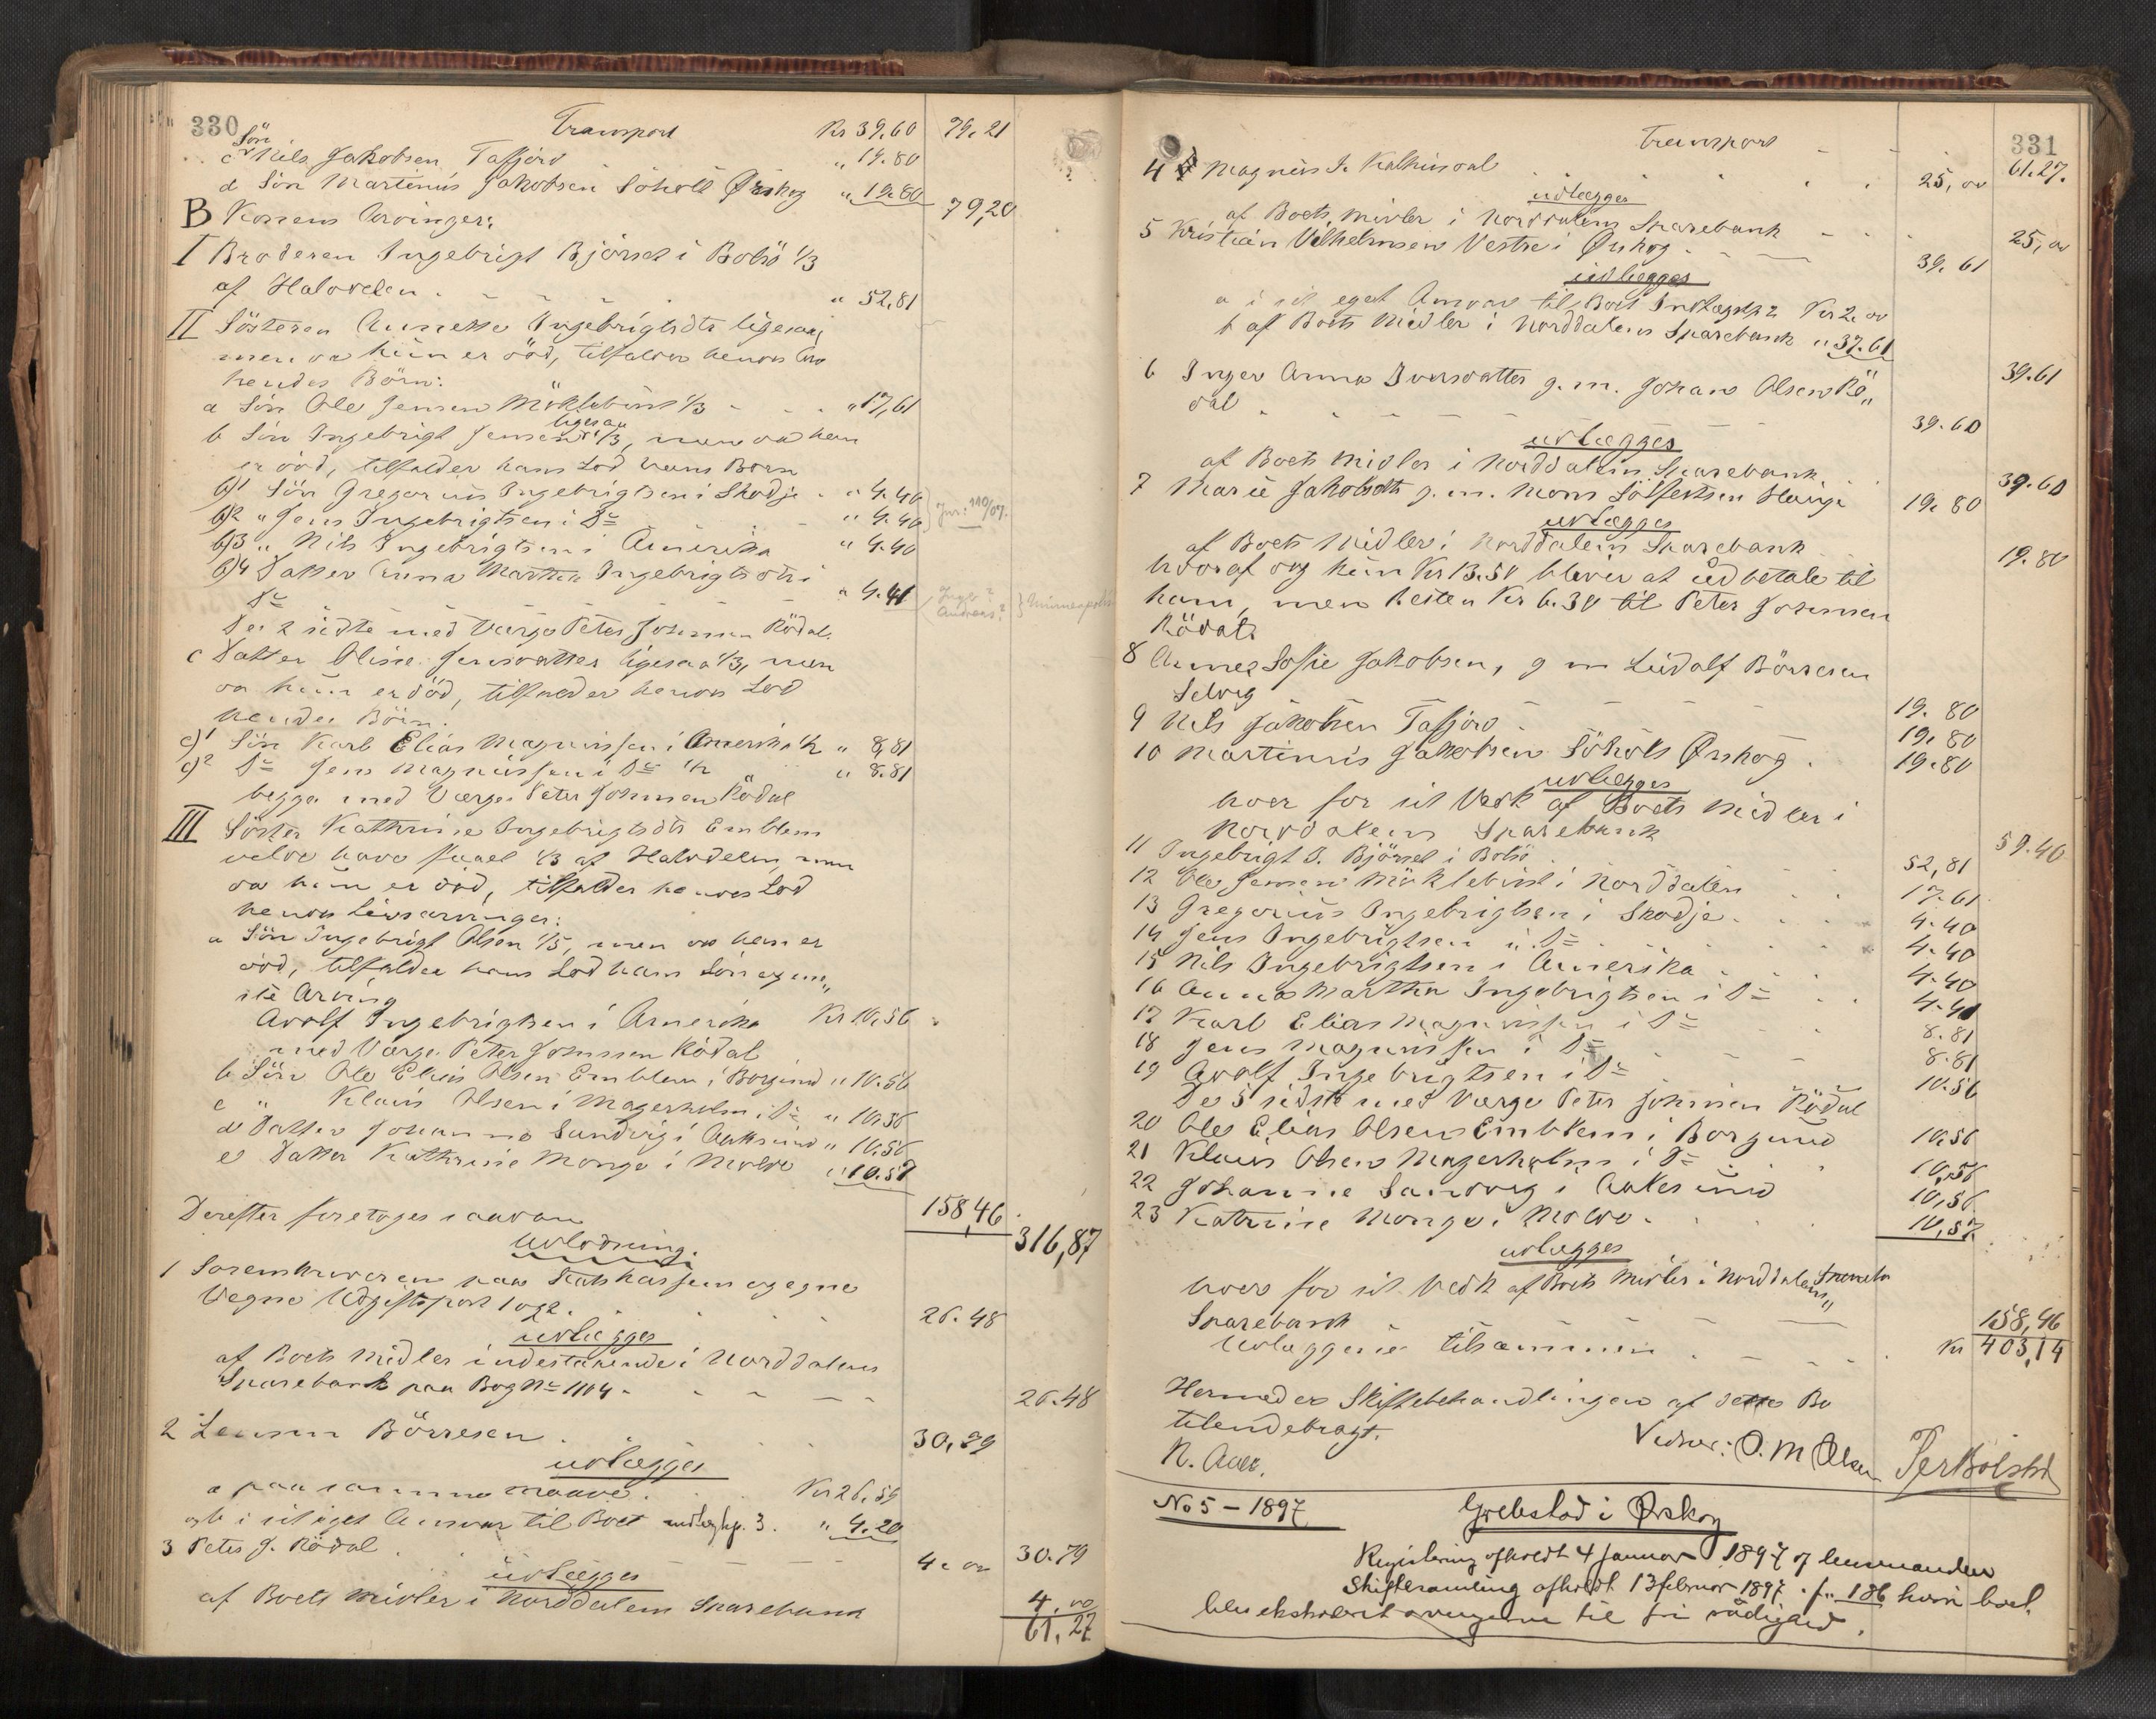 330
Transport Kr 39.60 79.21
c Sön Nils Jakobsen Tafjord „ 19.80
d Sön Martinus Jakobsen Söholt Ørskog „ 19.80 79,20
B Konens Arvinger:
I Broderen Ingebrigt Björset i Bolsö 1/3
af Halvdelen „ 52,81
II Søsteren Ingebrigtsdtr ligesaa,
men da hun er död, tilfalder hendes
hendes Börn:
a Sön Ole Jensen Möklebust 1/3 „ 17,61
b Sön Ingebrigt Jensen ligesaa 1/3, men da han
er död, tilfalder hans Lod hans Börn
b)1 Sön Gregorius Ingebrigtsen i Skodje „ 4.40
b)2 „ Jens Ingebrigtsen i Do „ 4.40
b)3 „ Nils Ingebrigtsen i Amerika „ 4.40
b)4 Datter Anna Martha Ingebrigtsdtr i
Do „ 4.41
De 2 sidste med Værge Peter Johnsen Rödal.
c Datter Oline Jensdatter ligesaa 1/3, men
da hun er död, tilfalder hendes Lod
hendes Börn.
c)1 Sön Karl Elias Magnussen i Amerika 1/2 „ 8,81
c)2 Do Jens Magnussen i Do 1/2 „ 8.81
begge med Værge Peter Johnsen Rödal
III Söster Kathrine Ingebrigtsdtr Emblem
vilde have faaet 1/3 af Halvdelen, men
da hun er död, tilfalder hendes Lod
hendes Livsarvinger:
a Sön Ingebrigt Olsen 1/5, men da han er
död, tilfalder hans Lod hans Sön og
ste Arving
Adolf Ingebrigtsen i Amerika Kr 10,56
med Værge Peter Johnsen Rödal
b Sön Ole Elias Olsen Emblem i Borgund „ 10.56
c „ Klaus Olsen i Magerholm i Do „ 10.56
d Datter Johanne Sandvig i Aukersund „ 10.56
e Datter Kathrine Monge i Molde „ 10.57
158,46
316,87
Derefter foretoges saadan
Udlodning.
1 Sorenskriveren paa Statskassens og egne
Vegne Udgiftspost 1 og 2. 26.48
udlægges
af Boets Midler indestaaende i Norddalens
Sparebank paa Bog No 1104 26.48
2 Lensm Börresen 30,79
udlægges
a paa samme Maade Kr 26,59
og b i sit eget Ansvar til Boet indtægtsp. 3. „ 4.20
30.79
3 Peter J. Rödal 4. 00
udlægges
af Boets Midler i Norddalens Sparebank 4. 00
61,27
331
Transport 61.27.
4 Magnus J. 25, 00
udlægges
af Boets Midler i Norddalens Sparebank 25, 00
5 Kristian Vilhelmsen Vestre i Ørskog 39. 61
udlægges
a i sit eget Ansvar til Boet Indtægtsp 2 Kr 2. 00
b af Boets Midler i Norddalens Sparebank „ 37.61
39.61
6 Inger Anna Iversdatter g. m. Johan Olsen Rö„
dal 39.60
udlægges
af Boets Midler i Norddalens Sparebank 39.60
7 Marie Jakobsdtr g. m. Mons 19. 80
udlægges
af Boets Midler i Norddalens Sparebank 19.80
hvoraf dog kun Kr 13.50 bliver at udbetale til
ham, men Resten Kr 6.30 til Peter Johnsen
Rödal.
8 Anne Sofie Jakobsen, g m Ludolf Börresen
Selvig 19. 80
9 Nils Jakobsen Tafjord 19, 80
10 Martinus Jakobsen Söholt Ørskog 19.80
udlægges
hver for sit Vedk af Boets Midler i
Norddalens Sparebank 59.40
11 Ingebrigt I. Björset i Bolsö 52,81
12 Ole Jensen Möklebust i Norddalen 17.61
13 Gregorius Ingebrigtsen i Skodje 4.40
14 Jens Ingebrigtsen i Do 4.40
15 Nils Ingebrigtsen i Amerika 4.40
16 Anna Martha Ingebrigtsen i Do 4.41
17 Karl Elias Magnussen i Do 8.81
18 Jens Magnussen i Do 8.81
19 Adolf Ingebrigtsen i Do 10.56
De 5 sidste med Værge Peter Johnsen Rödal
20 Ole Elias Olsen Emblem i Borgund 10,56
21 Klaus Olsen Magerholm i Do 10,56
22 Johanne Sandvig i Aukersund 10,56
23 Katrine Monge i Molde 10,57
udlægges
hver for sit Vedk af Boets Midler i Norddalens
Sparebank 158,46
Udlæggene tilsammen Kr 403,14
Hermed er Skiftebehandlingen af dette Bo
tilendebragt.
N. Aall. Vidner: O. M Olsen
No 5 – 1897 Grebstad i Ørskog
Registrering afholdt 4 Januar 1897 af lensmanden
Skiftesamling afholdt 13 februar 1897. f. 186 hvori boet
blev ekstraderet arvingerne til fri raadighed.